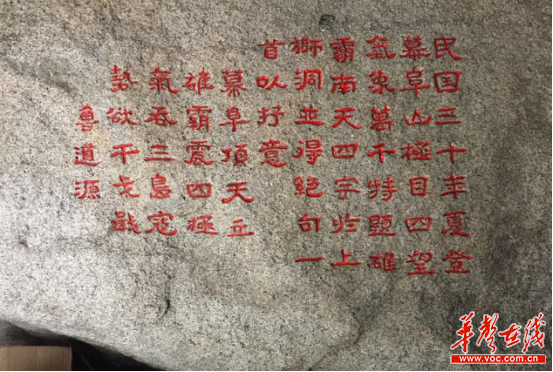 民国三十年夏登
幕阜山極目四望
氣象萬千特題雄
霸南天四字於上
獅洞並得絕句一
首以抒意
幕阜頂天立
雄霸震四極
氣吞三島寇
勢欲干戈戢
魯道源
华声在线
www.voc.com.cn